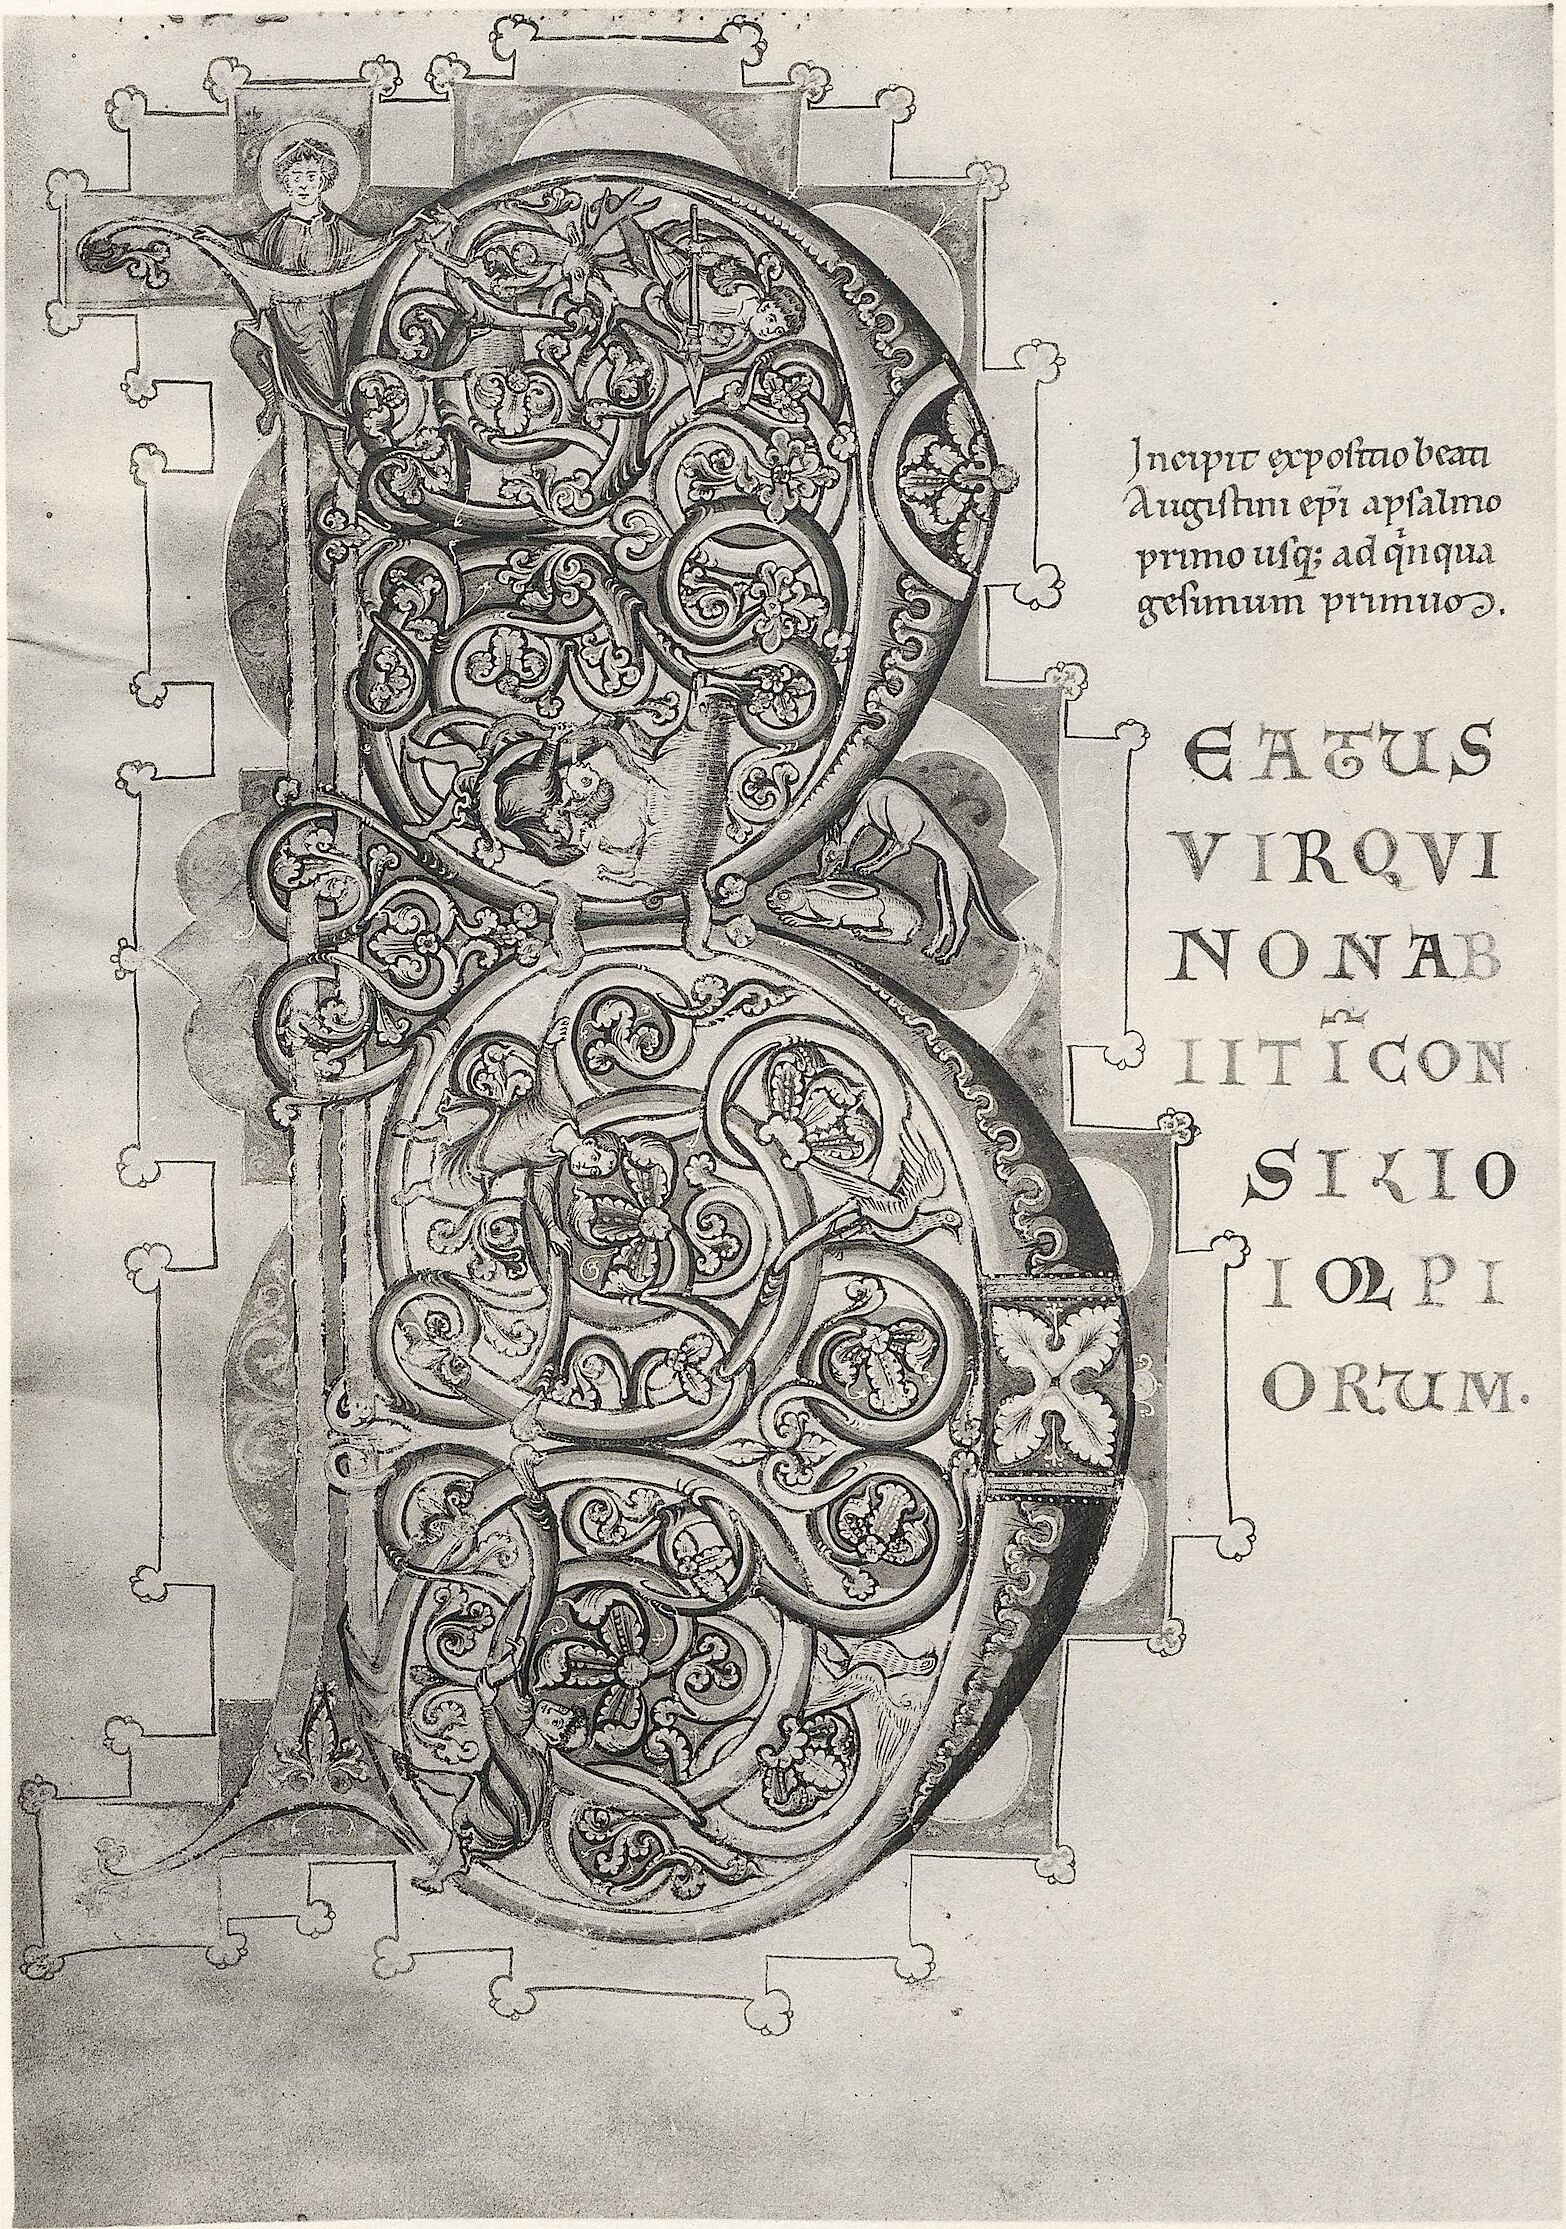 B
Incipit expositio beati
Augustini ep̄i a psalmo
primo usq; ad q̊nqua
gesimum primuɔ.
EATUS
VIR QVI
NON AB
IIT Ī CON
SILIO
IMPI
ORUM.